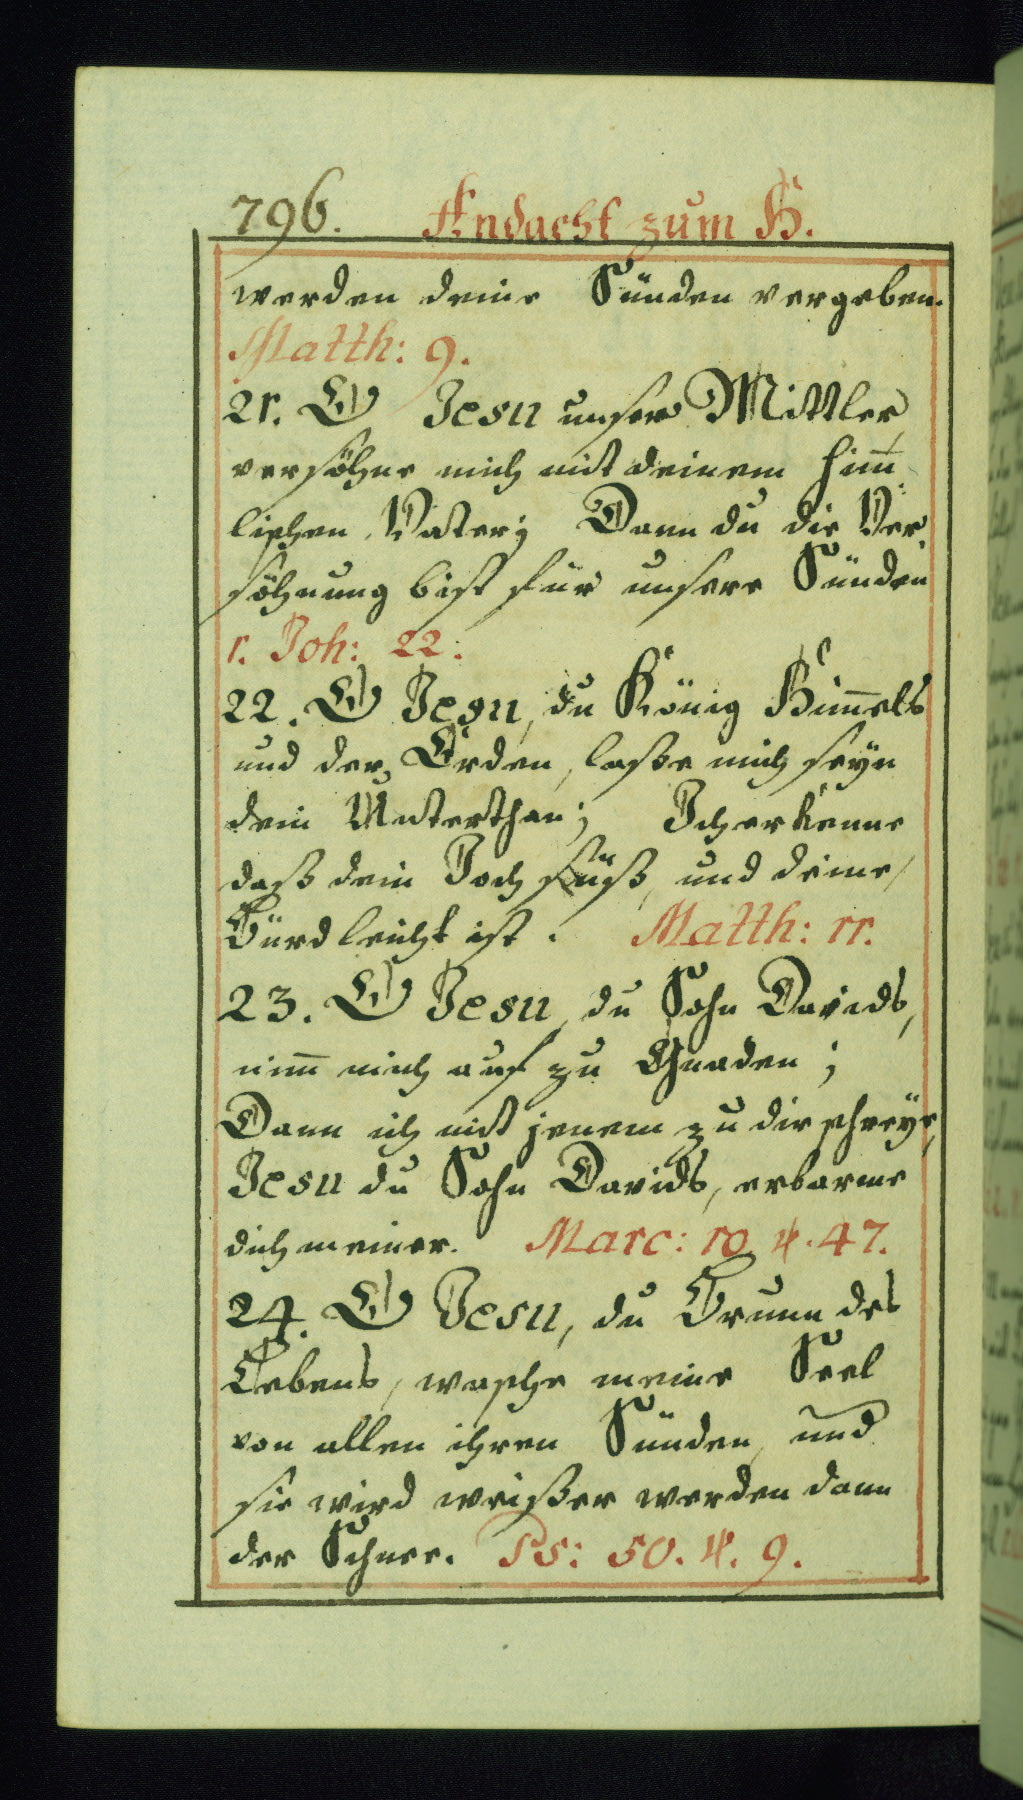 796. Andacht zum H.
werden deine Sünden vergeben.
Matth: 9.
21. O Jesu unser Mittler,
versöhne mich mit deinem him̅
lischen Vater; Dann du die Ver
söhnung bist für unsere Sünden
1. Joh: 22.
22. O Jesu, du König Him̅els
und der Erden, lasse mich seÿn
dein Unterthan; Ich erkenne
daß dein Joch süß, und deine
Bürd leicht ist. Matth: 11.
23. O Jesu, du Sohn Davids,
nim̅ mich auf zu Gnaden;
Dann ich mit jenem zu dir schreÿe,
Jesu du Sohn Davids, erbarme
dich meiner. Marc: 10 ℣. 47.
24. O Jesu, du Brunn des
Lebens, wasche meine Seel
von allen ihren Sünden, und
sie wird weisser werden dann
der Schnee. Ps: 50. ℣. 9.